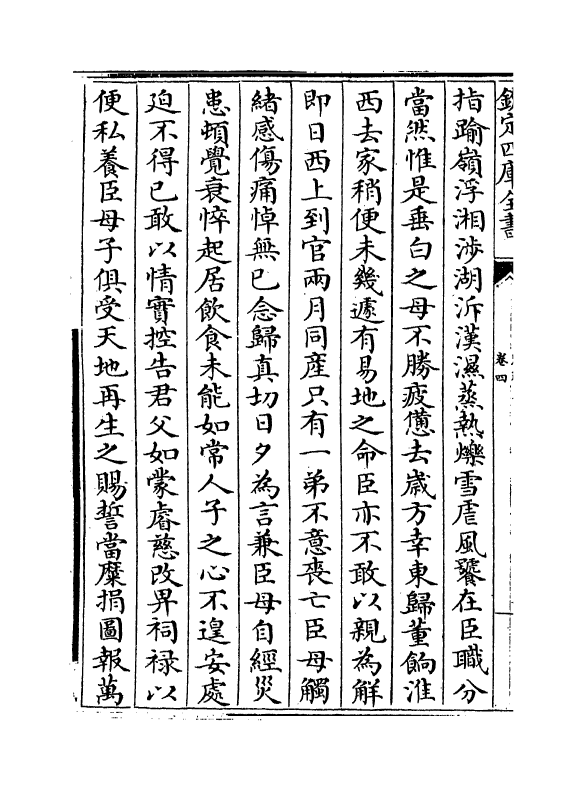 欽定四庫全書
卷四
指踰嶺浮湘涉湖泝漢濕蒸熱爍雪虐風饕在臣職分
當然惟是垂白之母不勝疲憊去歲方幸東歸董餉淮
西去家稍便未幾遽有易地之命臣亦不敢以親為解
即日西上到官兩月同產只有一弟不意喪亡臣母觸
緒感傷痛悼無已念歸真切日夕為言兼臣母自經災
患頓覺衰悴起居飲食未能如常人子之心不遑安處
迫不得已敢以情實控告君父如蒙睿慈改畀祠祿以
便私養臣母子俱受天地再生之賜誓當糜捐圖報萬